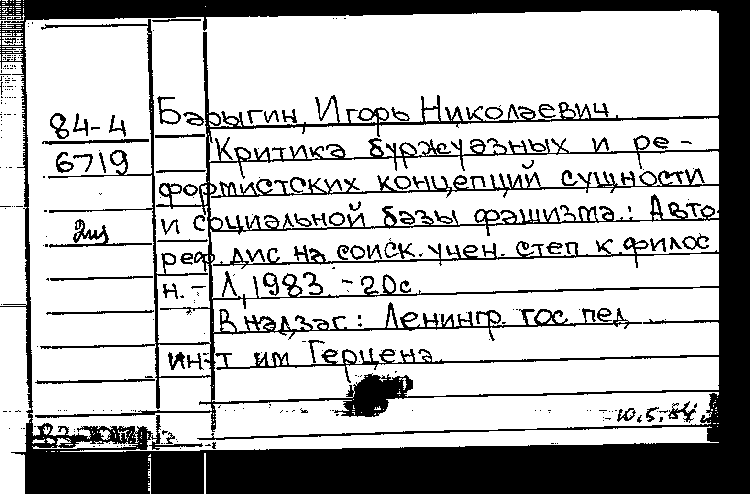 84-4
6719
Барыгин, Игорь Николаевич.
Критика буржуазных и ре-
формистских концепций сущности
и социальной базы фашизма.: Авто-
реф. дис на соиск. учен. степ к. филос.
н. - Л, 1983 - 20с.
В надзаг: Ленингр. гос. пед
ин-т им Герцена.
10.5.84.